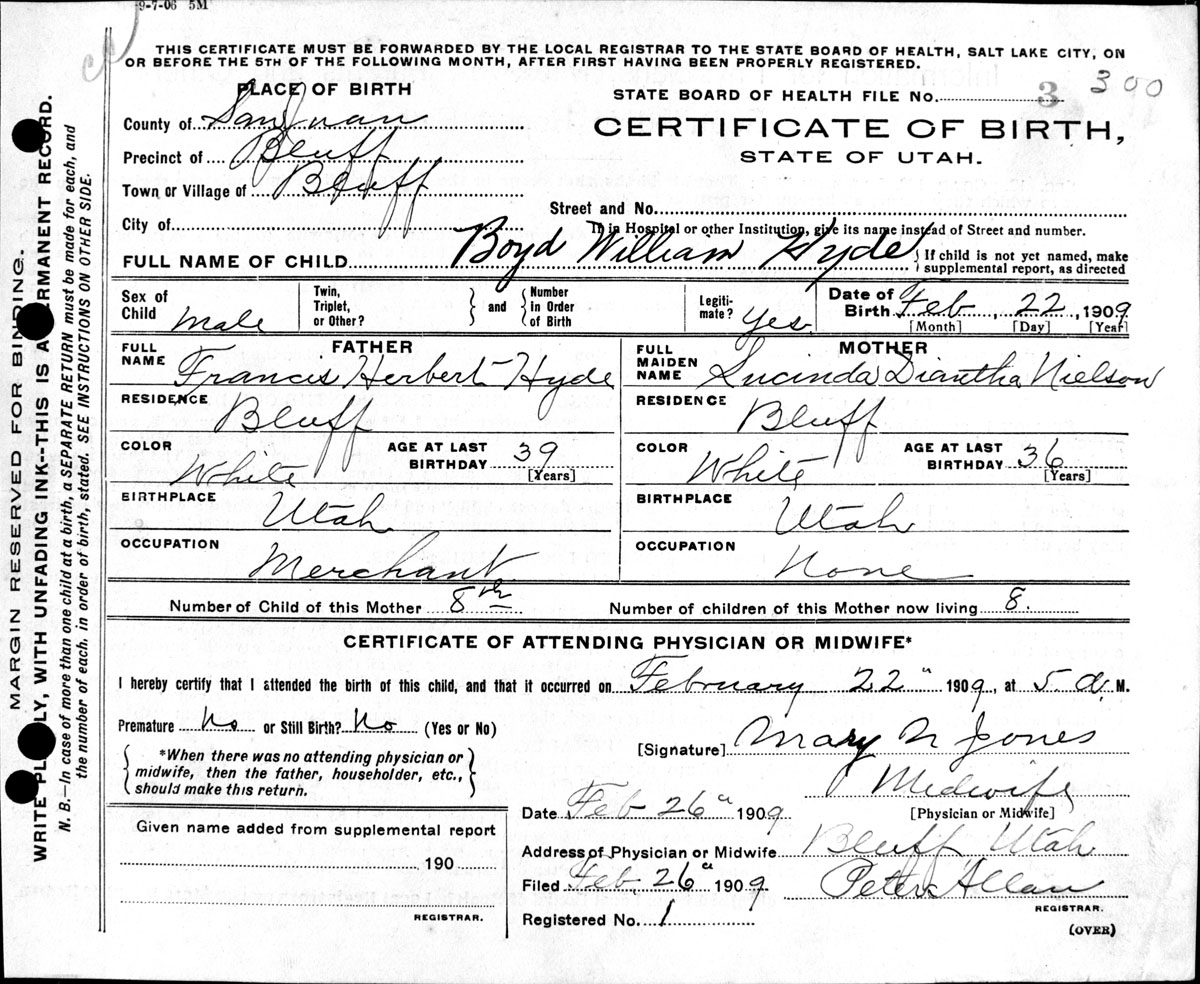 9-7-06 5M
THIS CERTIFICATE MUST BE FORWARDED BY THE LOCAL REGISTRAR TO THE STATE BOARD OF HEALTH, SALT LAKE CITY, ON
OR BEFORE THE 5TH OF THE FOLLOWING MONTH, AFTER FIRST HAVING BEEN PROPERLY REGISTERED.
PLACE OF BIRTH
County of San Juan
Precinct of Bluff
Town or Village of Bluff
City of
STATE BOARD OF HEALTH FILE No. 3 300
CERTIFICATE OF BIRTH,
STATE OF UTAH.
Street and No.
If in Hospital or other Institution, give its name instead of Street and number.
FULL NAME OF CHILD Boyd William Hyde { If child is not yet named, make
supplemental report, as directed
Sex of
Child Male
Twin,
Triplet,
or Other? } and { Number
in Order
of Birth
Legiti-
mate? Yes.
Date of
Birth Feb 22, 1909
[Month] [Day] [Year]
FATHER
FULL
NAME Francis Herbert Hyde
RESIDENCE Bluff
COLOR White
AGE AT LAST
BIRTHDAY 39
[Years]
BIRTHPLACE Utah
OCCUPATION Merchant
MOTHER
FULL
MAIDEN
NAME Lucinda Diantha Nielson
RESIDENCE Bluff
COLOR White
AGE AT LAST
BIRTHDAY 36
[Years]
BIRTHPLACE Utah
OCCUPATION None
Number of Child of this Mother 8th Number of children of this Mother now living 8.
CERTIFICATE OF ATTENDING PHYSICIAN OR MIDWIFE*
I hereby certify that I attended the birth of this child, and that it occurred on February 22" 1909, at 5 a. M.
Premature No or Still Birth? No (Yes or No)
{ *When there was no attending physician or
midwife, then the father, householder, etc.,
should make this return. }
[Signature] Mary N Jones
Midwife
[Physician or Midwife]
Date Feb 26" 1909
Address of Physician or Midwife Bluff Utah
Filed Feb. 26" 1909 Peter Allan
REGISTRAR.
Registered No. 1
(OVER)
Given name added from supplemental report
190
REGISTRAR.
MARGIN RESERVED FOR BINDING.
WRITE PL LY, WITH UNFADING INK--THIS IS A RMANENT RECORD.
N. B.—In case of more than one child at a birth, a SEPARATE RETURN must be made for each, and
the number of each, in order of birth, stated. SEE INSTRUCTIONS ON OTHER SIDE.